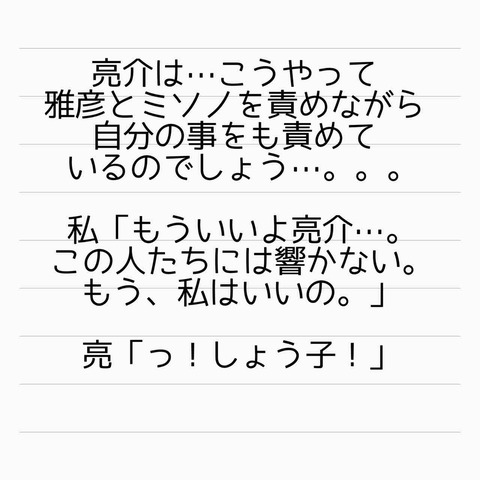 亮介は…こうやって
雅彦とミソノを責めながら
自分の事をも責めて
いるのでしょう…。。。
私「もういいよ亮介…。
この人たちには響かない。
もう、私はいいの。」
亮「っ！しょう子！」